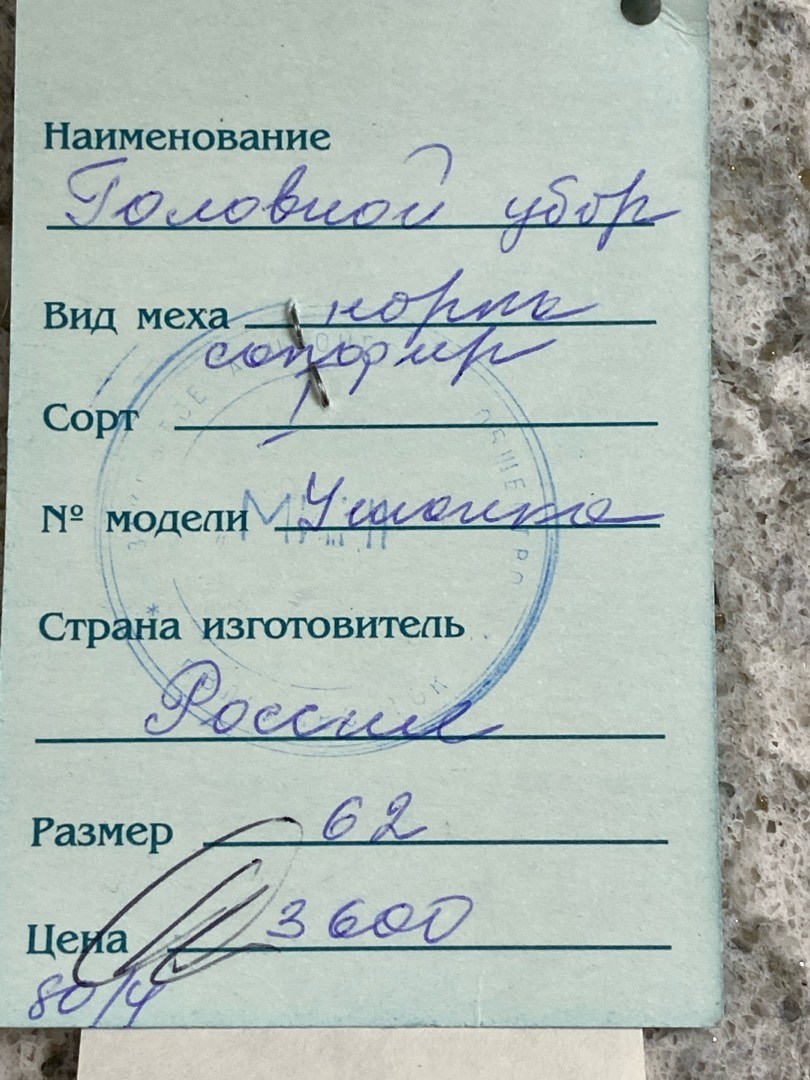 Наименование
Головной убор
Вид меха норка
сапфир
Сорт I
№ модели Ушанка
Страна изготовитель
Россия
Размер 62
Цена 3600
80/4